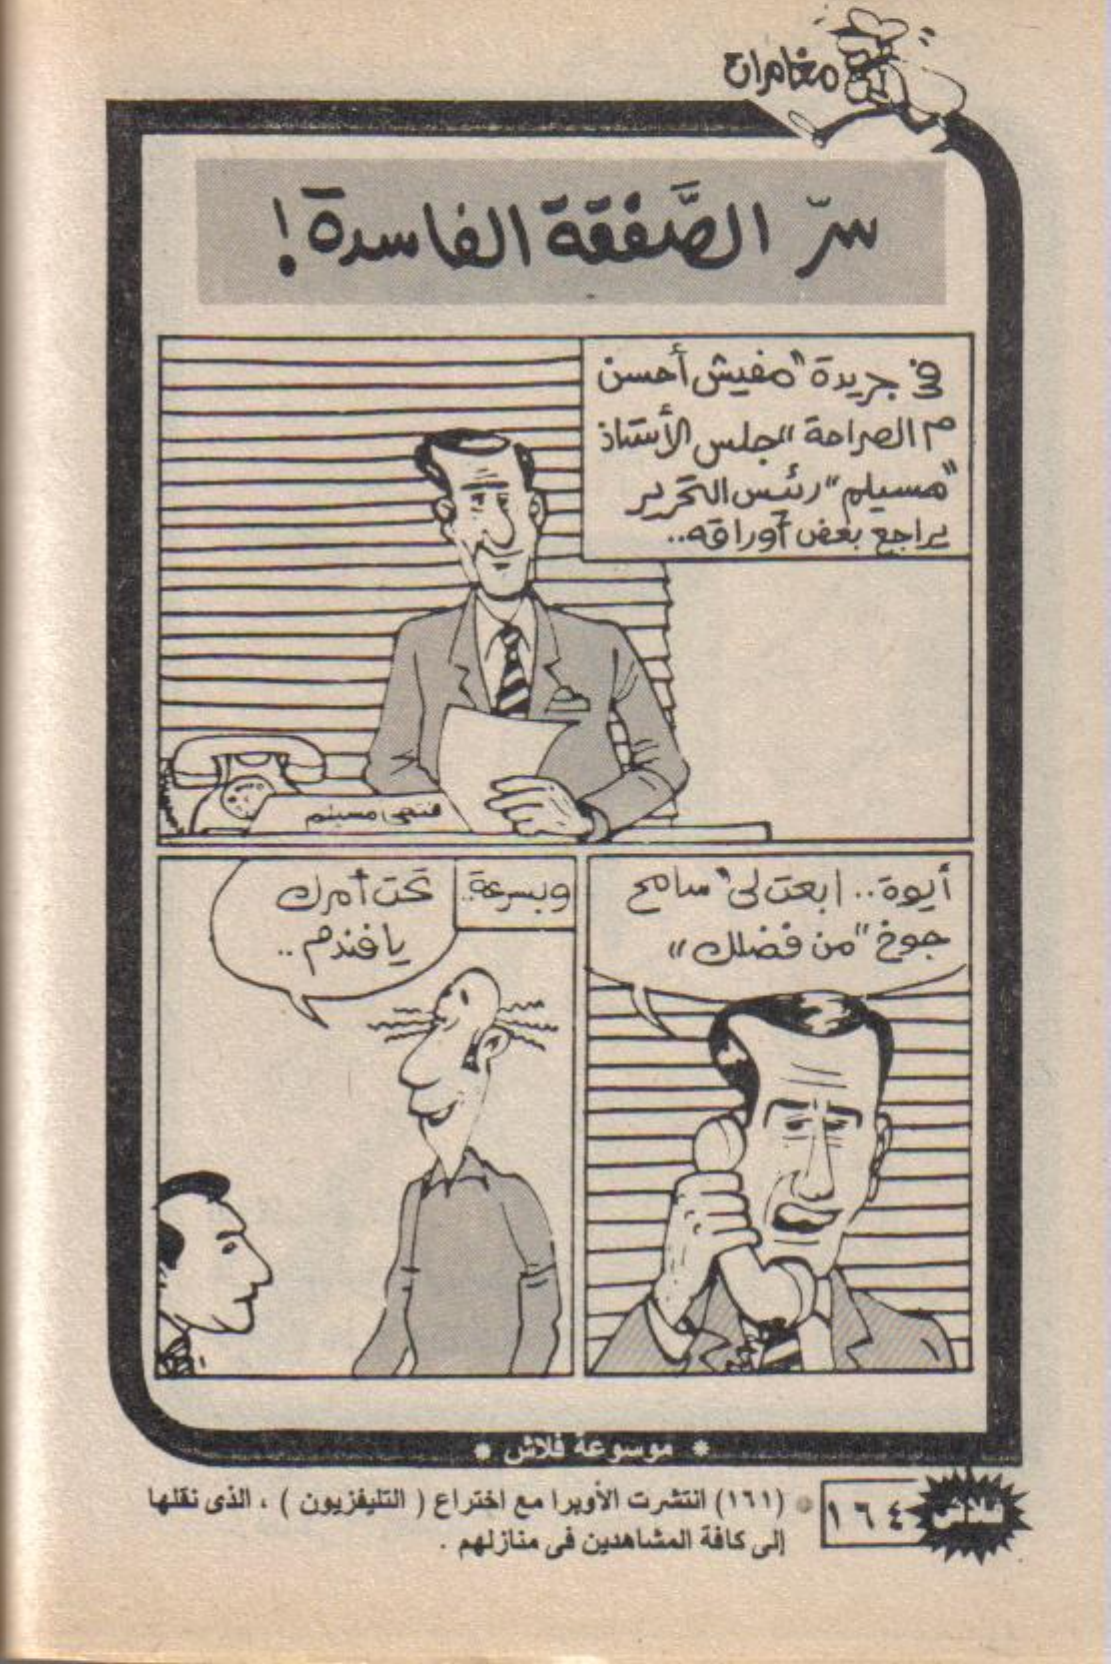 مغامرات
سرّ الصَّفقة الفاسدة!
في جريدة "مفيش أحسن
م الصراحة" جلس الأستاذ
"مسيلم" رئيس التحرير
يراجع بعض أوراقه..
فتحى مسيلم
أيوة.. ابعت لى "سامح
جوخ" من فضلك"
وبسرعة..
تحت أمرك
يا فندم ..
* موسوعة فلاش *
فلاش ١٦٤
(١٦١) انتشرت الأوبرا مع اختراع ( التليفزيون ) ، الذى نقلها
إلى كافة المشاهدين فى منازلهم .